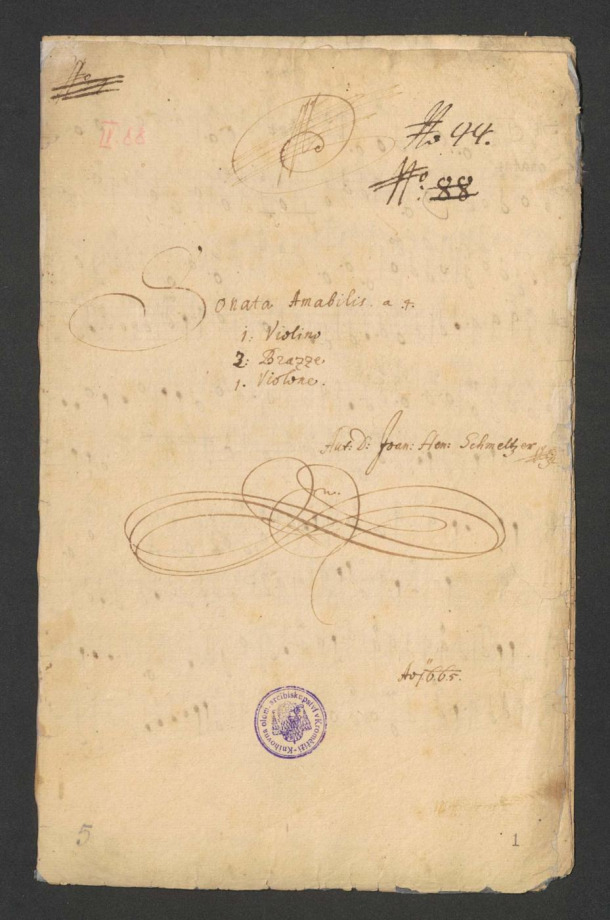 No
II 88
No 44.
No: 88
Sonata Amabilis. a 4.
1: Violino
2: Brazze
1. Violone.
Aut: D: Joan: Hen: Schmeltzer
Ao 1665.
Knihovna olom. arcibiskupství v Kroměříži
5
1